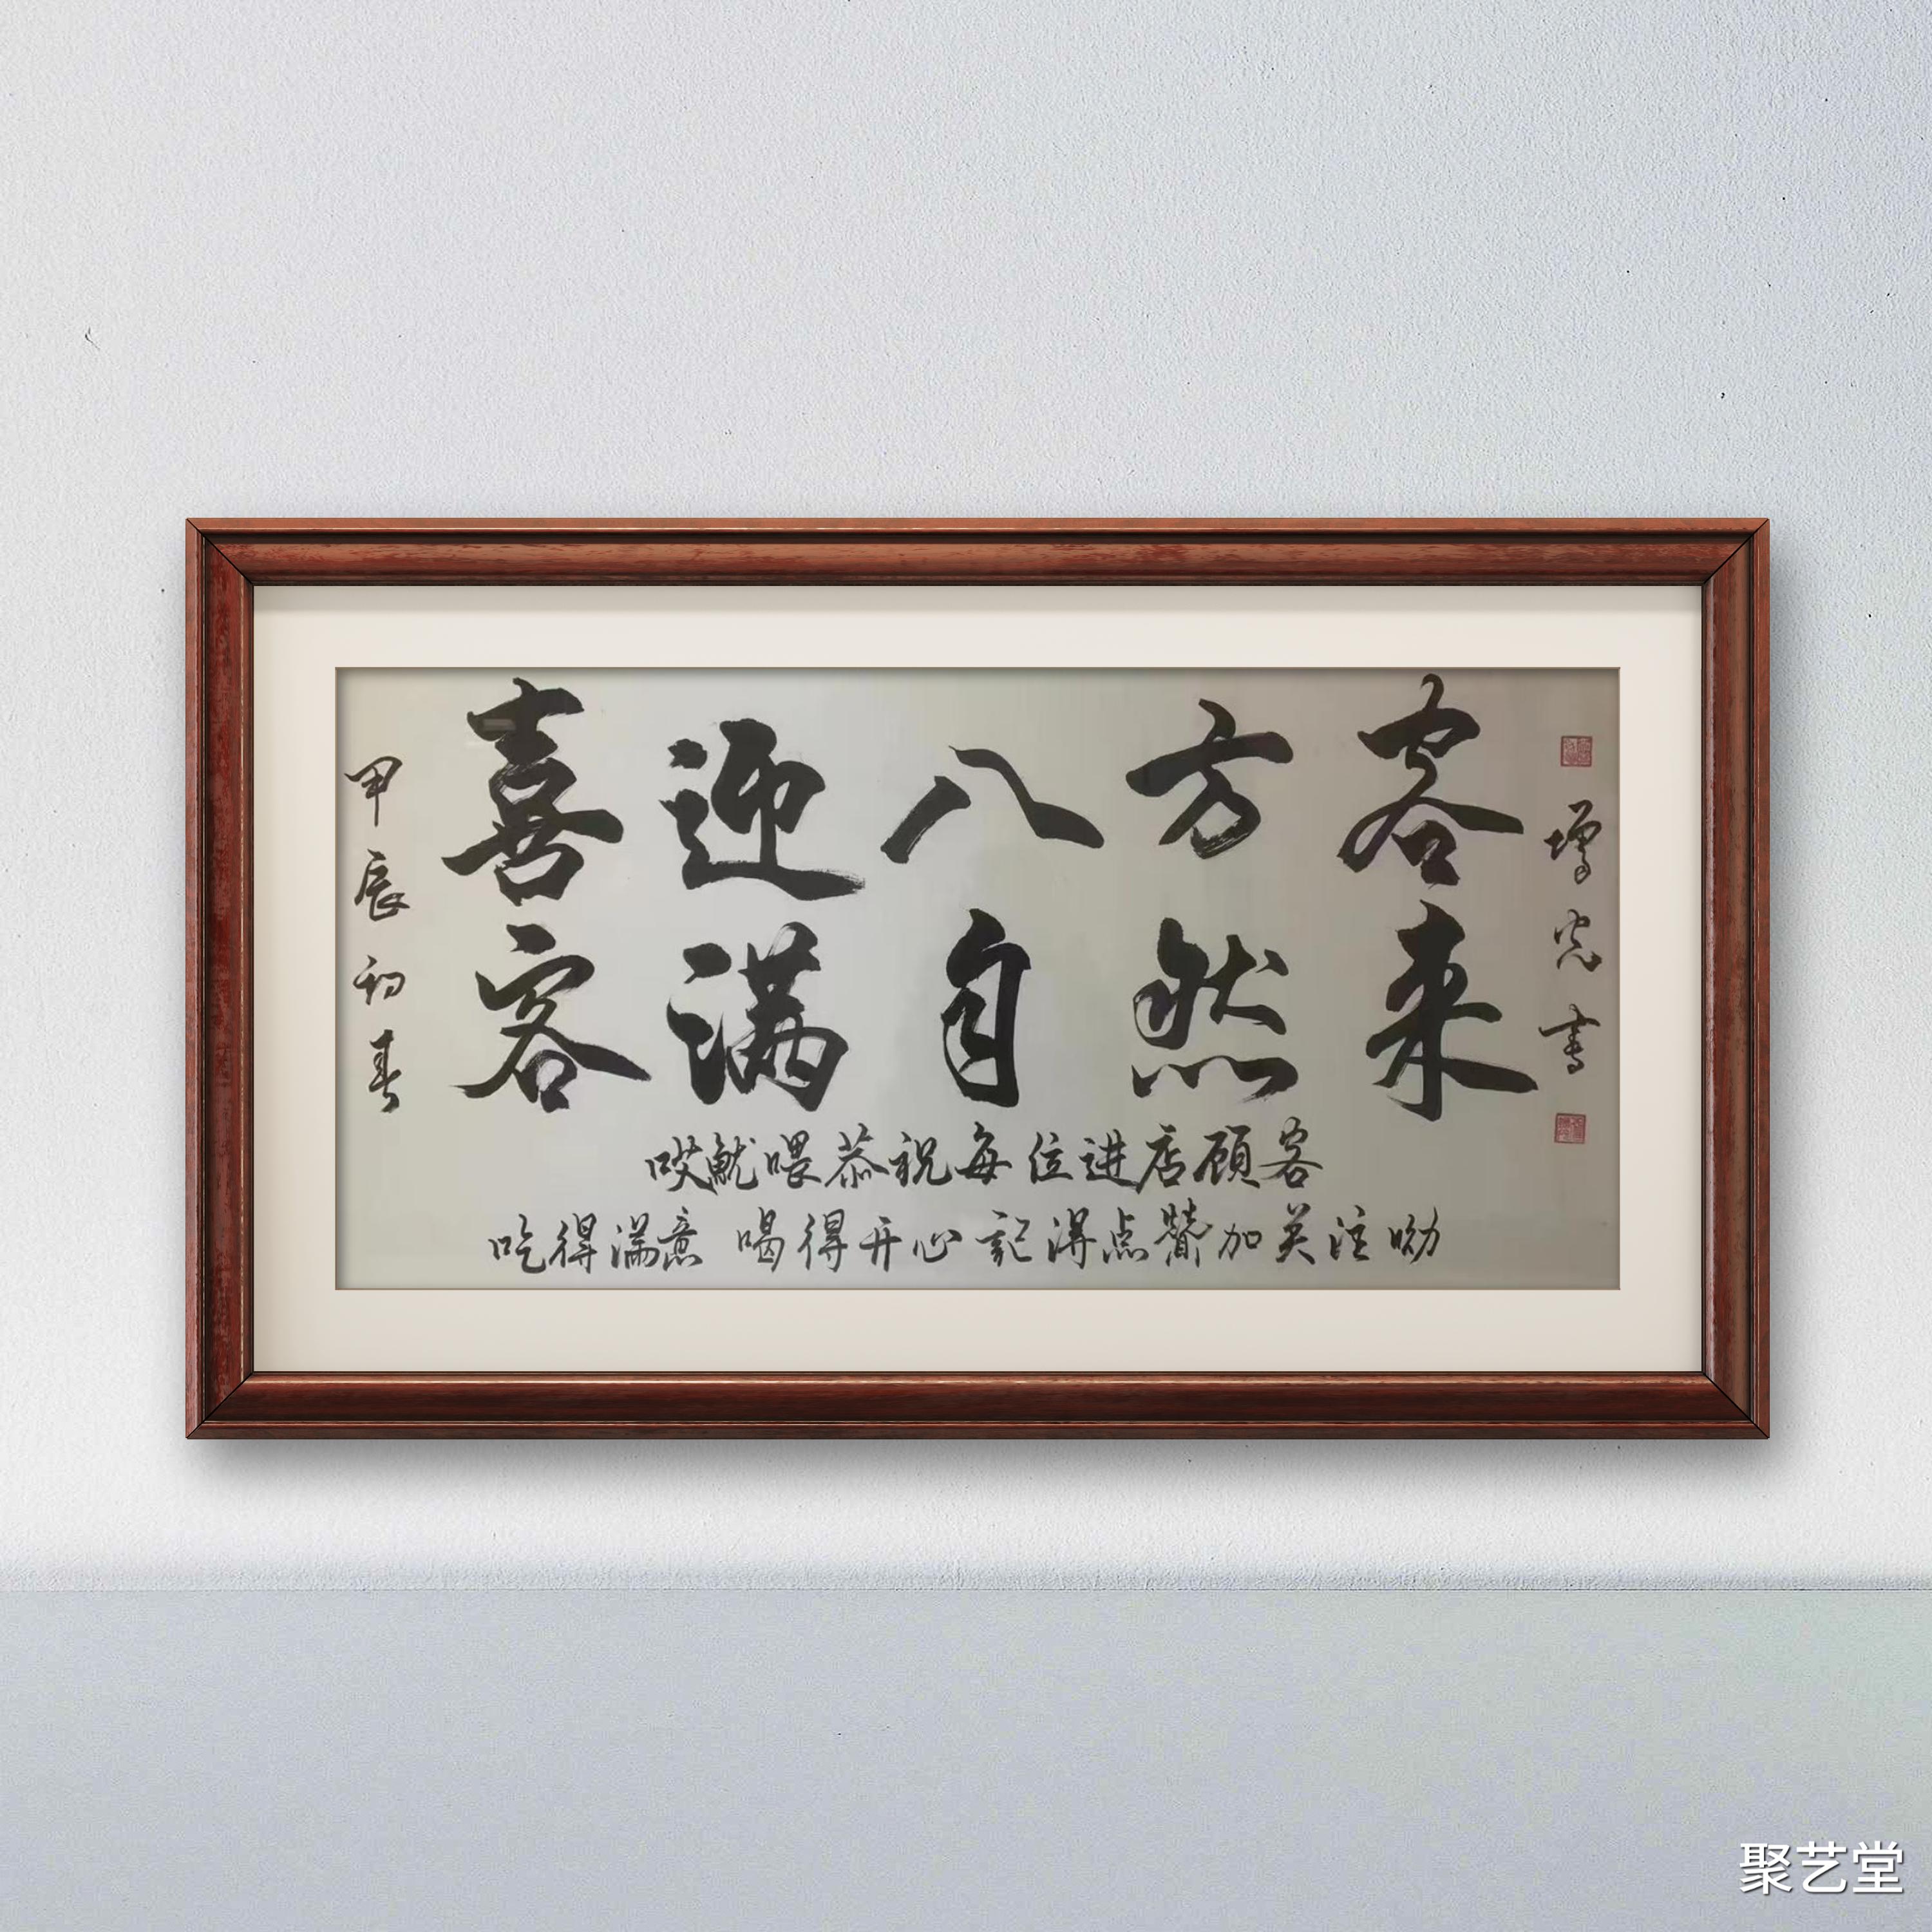 甲辰初春
喜迎八方客
客满自然来
哎魷喂恭祝每位进店顾客
吃得满意 喝得开心 記得点赞加关注呦
增 書
聚艺堂